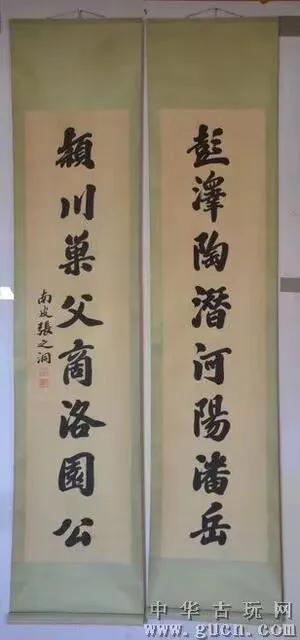 彭澤陶潛河陽潘岳
潁川巢父商洛園公
南皮張之洞
中华古玩网
www.gucn.com